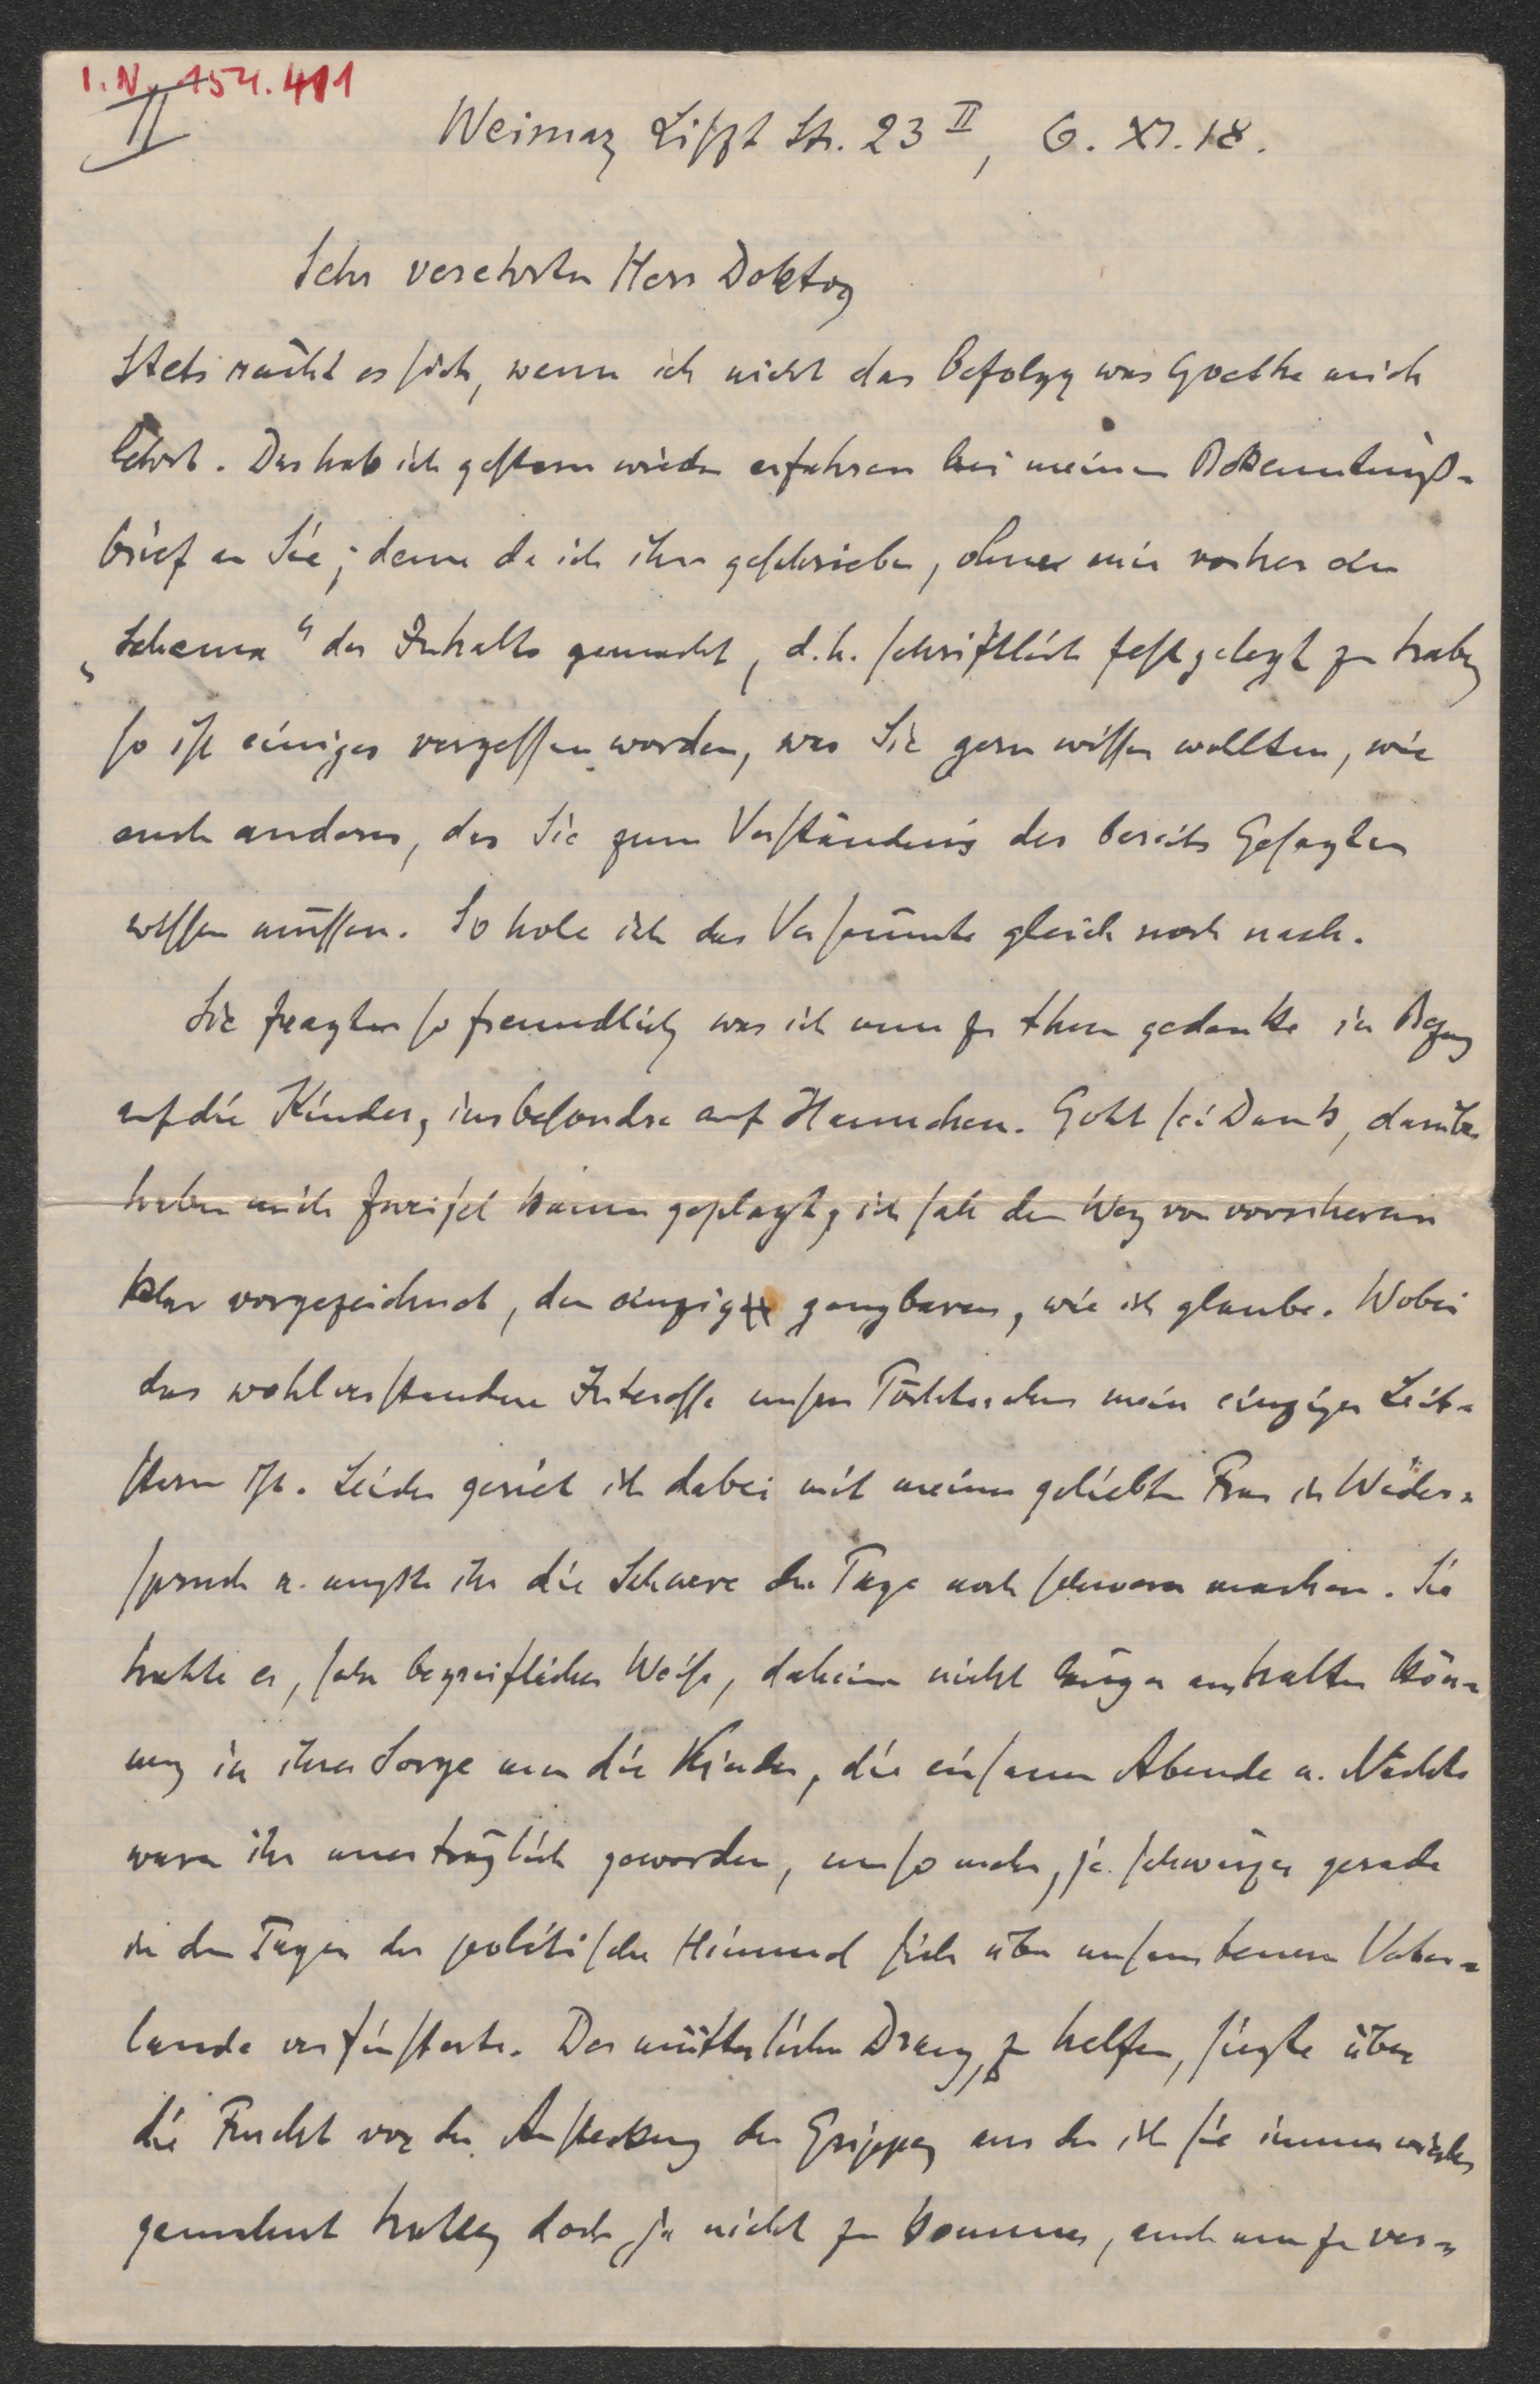 I.N. 154.411
II
Weimar Liszt Str. 23 II, 6. XI. 18.
Sehr verehrter Herr Doktor
Stets rächt es sich, wenn ich nicht das befolge was Goethe mich
lehrt. Das hab ich gestern wieder erfahren bei meinem Bekenntniß-
brief an Sie; denn da ich ihn geschrieben, ohne mir vorher ein
„Schema“ des Inhalts gemacht, d.h. schriftlich festgelegt zu haben
so ist einiges vergessen worden, was Sie gern wissen wollten, wie
auch anderes, das Sie zum Verständnis des bereits Gesagten
wissen müssen. So hole ich das Versäumte gleich noch nach.
Sie fragten so freundlich was ich nun zu thun gedenke in Bezug
auf die Kinder, insbesondre auf Hannchen. Gott sei Dank, darüber
haben mich Zweifel kaum geplagt, ich sah den Weg von vornherein
klar vorgezeichnet, den einzig gangbaren, wie ich glaube. Wobei
das wohlverstandene Interesse unsres Töchterchens mein einziger Leit-
stern ist. Leider geriet ich dabei mit meiner geliebten Frau in Wider-
spruch u. mußte ihr die Schwere der Tage noch schwerer machen. Sie
hatte es, sehr begreiflicher Weise, daheim nicht länger aushalten kön-
nen in ihrer Sorge um die Kinder, die einsamen Abende u. Nächte
waren ihr unerträglich geworden, umso mehr, je schwärzer gerade
in den Tagen der politische Himmel sich über unserm teuren Vater-
lande verfinsterte. Der mütterliche Drang, zu helfen, siegte über
die Furcht vor der Ansteckung der Grippe, aus der ich sie immer wieder
gemahnt hatte, doch ja nicht zu kommen, auch um zu ver-